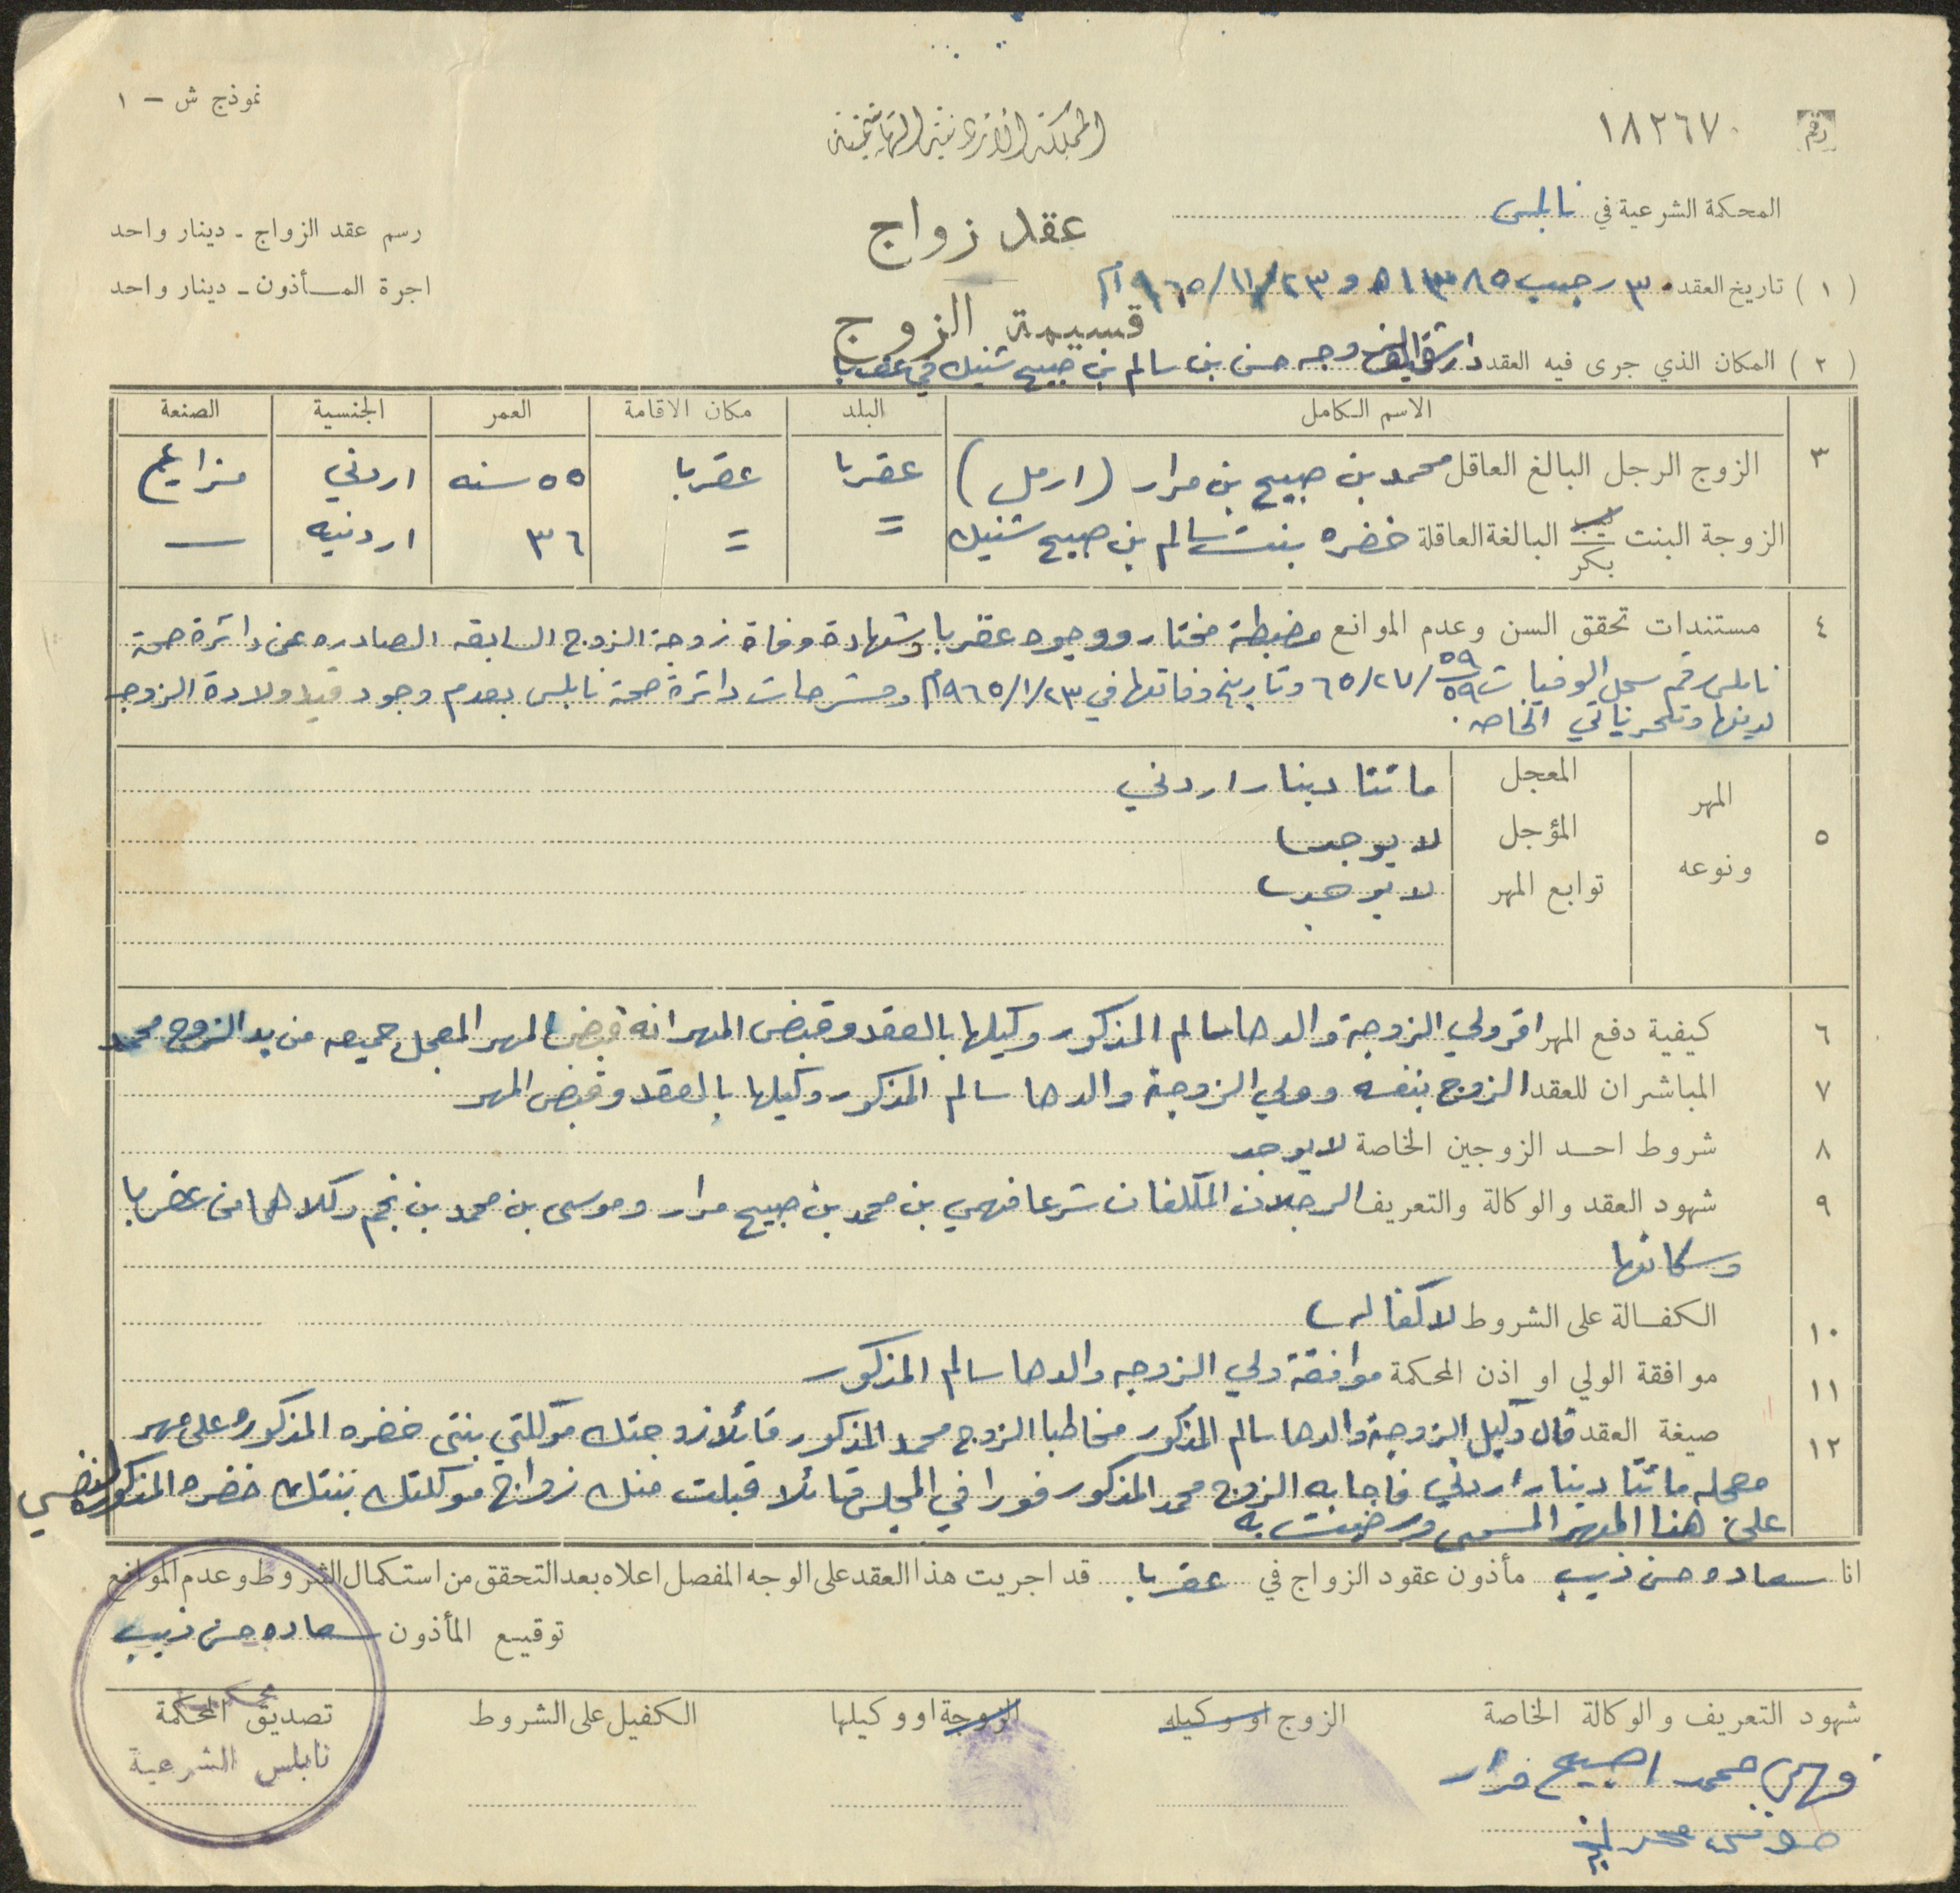 رقم ١٨٢٦٧٠
نموذج ش - ١
المملكة الأردنية الهاشمية
المحكمة الشرعية في نابلس
عقد زواج
رسم عقد الزواج - دينار واحد
اجرة المأذون - دينار واحد
( ١ ) تاريخ العقد ٣٠ رجب ١٣٨٥ هـ و ٢٣/١١/٩٦٥م
قسيمة الزوج
( ٢ ) المكان الذي جرى فيه العقد دار شقيق الزوجه حسن بن سالم بن صبيح شنيك في عقربا
الاسم الكامل البلد مكان الاقامة العمر الجنسية الصنعة
٣ الزوج الرجل البالغ العاقل محمد بن صبيح بن مرار (ارمل) عقربا عقربا ٥٥ سنه اردني مزارع
الزوجة البنت ثيب بكر البالغة العاقلة خضره بنت سالم بن صبيح شنيك = = ٣٦ اردنيه —
٤ مستندات تحقق السن وعدم الموانع مضبطة مختار ووجوه عقربا وشهادة وفاة زوجة الزوج السابقه الصادره عن دائرة صحة
نابلس رقم سجل الوفيات ٥٩/٥٩ ٦٥/٢٧ وتاريخ وفاتها في ٩٦٥/١/٢٣م ومشرحات دائرة صحة نابلس بعدم وجود قيد ولادة الزوجه
لديها وتحرياتي الخاصه.
٥ المهر ونوعه
المعجل مائتا دينار اردني
المؤجل لا يوجد
توابع المهر لا يوجد
٦ كيفية دفع المهر اقر ولي الزوجة والدها سالم المذكور وكيلها بالعقد وقبض المهر انه قبض المهر المعجل جميعه من يد الزوج محمد
٧ المباشران للعقد الزوج بنفسه وولي الزوجة والدها سالم المذكور وكيلها بالعقد وقبض المهر
٨ شروط احد الزوجين الخاصة لا يوجد
٩ شهود العقد والوكالة والتعريف الرجلان المكلفان شرعا فهمي بن محمد بن صبيح مرار وموسى بن محمد بن نجم وكلاهما من عقربا
وسكانها
١٠ الكفالة على الشروط لا كفاله
١١ موافقة الولي او اذن المحكمة موافقة ولي الزوجه والدها سالم المذكور
١٢ صيغة العقد قال وكيل الزوجة والدها سالم المذكور مخاطبا الزوج محمد المذكور قائلا زوجتك موكلتي بنتي خضره المذكوره على مهر
معجله مائتا دينار اردني فاجابه الزوج محمد المذكور فورا في المجلس قائلا قبلت منك زواج موكلتك بنتك خضره المذكوره لنفسي
على هذا المهر المسمى ورضيت به
انا سعاده حسن ذيب مأذون عقود الزواج في عقربا قد اجريت هذا العقد على الوجه المفصل اعلاه بعد التحقق من استكمال الشروط وعدم الموانع
توقيع المأذون سعاده حسن ذيب
شهود التعريف والوكالة الخاصة الزوج او وكيله الزوجة او وكيلها الكفيل على الشروط تصديق المحكمة
محكمة
نابلس الشرعية
فهمي محمد اصبيح مرار
موسى محمد نجم